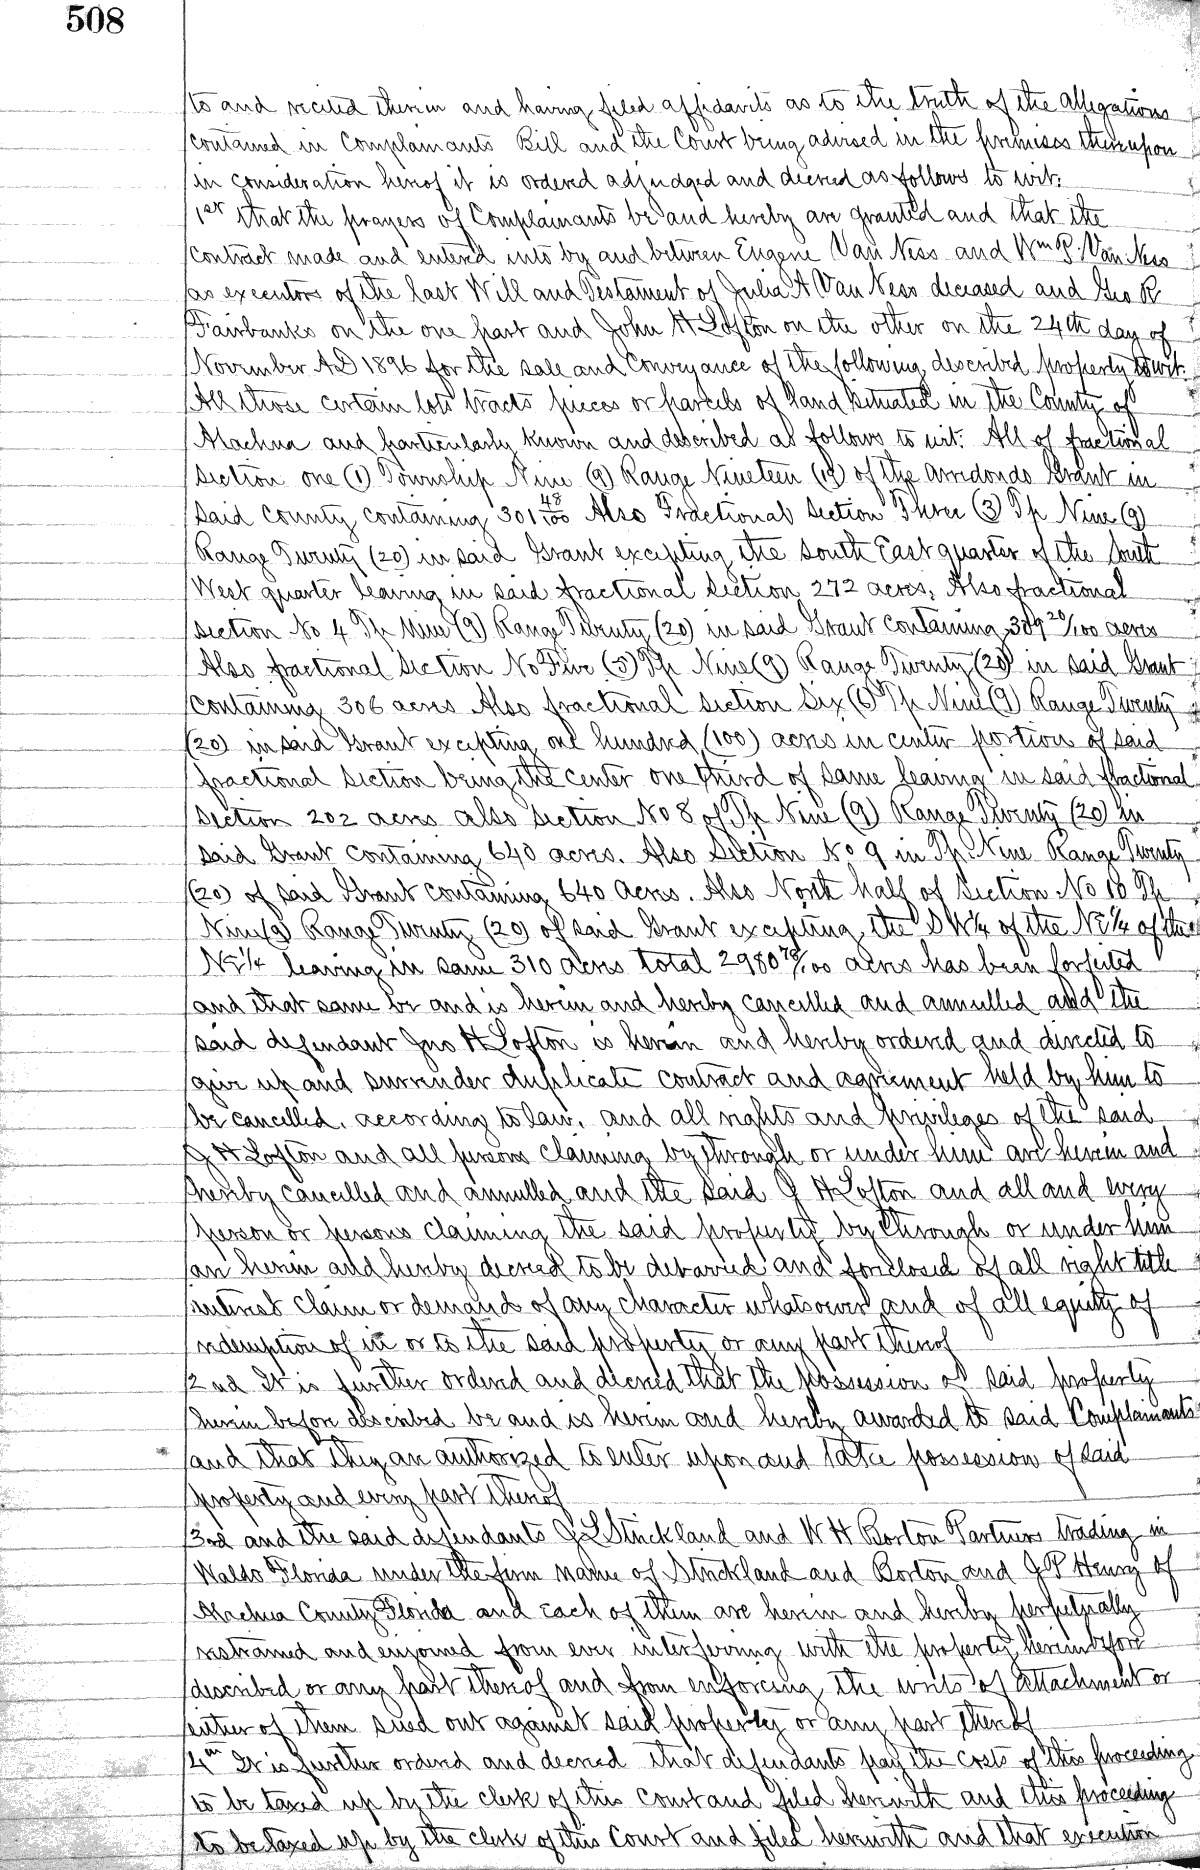 508
to and recited therein and having filed affidavits as to the truth of the allegations
contained in Complainants Bill and the Court being advised in the premises thereupon
in consideration hereof it is ordered adjudged and decreed as follows to wit:
1st that the prayers of Complainants be and hereby are granted and that the
contract made and entered into by and between Eugene Van Ness and Wm P. Van Ness
as executors of the last Will and Testament of Julia A Van Ness deceased and Geo R
Fairbanks on the one part and John H Lofton on the other on the 24th day of
November AD 1896 for the sale and Conveyance of the following described property to wit:
All those certain lots tracts pieces or parcels of land situated in the County of
Alachua and particularly known and described as follows to wit: All of fractional
section one (1) Township Nine (9) Range Nineteen (19) of the Arredondo Grant in
said county containing 301 48/100 Also Fractional section Three (3) Tp Nine (9)
Range Twenty (20) in said Grant excepting the South East quarter of the South
West quarter leaving in said fractional section 272 acres, Also fractional
section No 4 Tp Nine (9) Range Twenty (20) in said Grant containing 309 20/100 acres
Also fractional section No Five (5) Tp Nine (9) Range Twenty (20) in said Grant
containing 306 acres Also fractional section Six (6) Tp Nine (9) Range Twenty
(20) in said Grant excepting one hundred (100) acres in center portion of said
fractional section being the center one third of same leaving in said fractional
section 202 acres also section No 8 of Tp Nine (9) Range Twenty (20) in
said Grant containing 640 acres. Also Section No 9 in Tp. Nine Range Twenty
(20) of said Grant containing 640 acres. Also North half of Section No 10 Tp
Nine (9) Range Twenty (20) of said Grant excepting the SW1/4 of the NE1/4 of the
NE1/4 leaving in same 310 acres total 2980 78/100 acres has been forfeited
and that same be and is herein and hereby cancelled and annulled and the
said defendant Jno H Lofton is herein and hereby ordered and directed to
give up and surrender duplicate contract and agreement held by him to
be cancelled. according to law. and all rights and privileges of the said
J H Lofton and all persons claiming by through or under him are herein and
hereby cancelled and annulled and the said J H Lofton and all and every
person or persons claiming the said property by through or under him
are herein and hereby decreed to be debarred and foreclosed of all right title
interest claim or demand of any character whatsoever and of all equity of
redemption of in or to the said property or any part thereof
2nd It is further ordered and decreed that the possession of said property
herein before described be and is herein and hereby awarded to said Complainants
and that they are authorized to enter upon and take possession of said
property and every part thereof
3rd and the said defendants J L Strickland and W H Borton Partners trading in
Waldo Florida under the firm name of Strickland and Borton and J P Henry of
Alachua County Florida and each of them are herein and hereby perpetually
restrained and enjoined from ever interfering with the property hereinbefore
described or any part thereof and from enforcing the writs of attachment or
either of them sued out against said property or any part thereof
4th It is further ordered and decreed that defendants pay the costs of this proceeding
to be taxed up by the clerk of this court and filed herewith and this proceeding
to be taxed up by the clerk of this Court and filed herewith and that execution